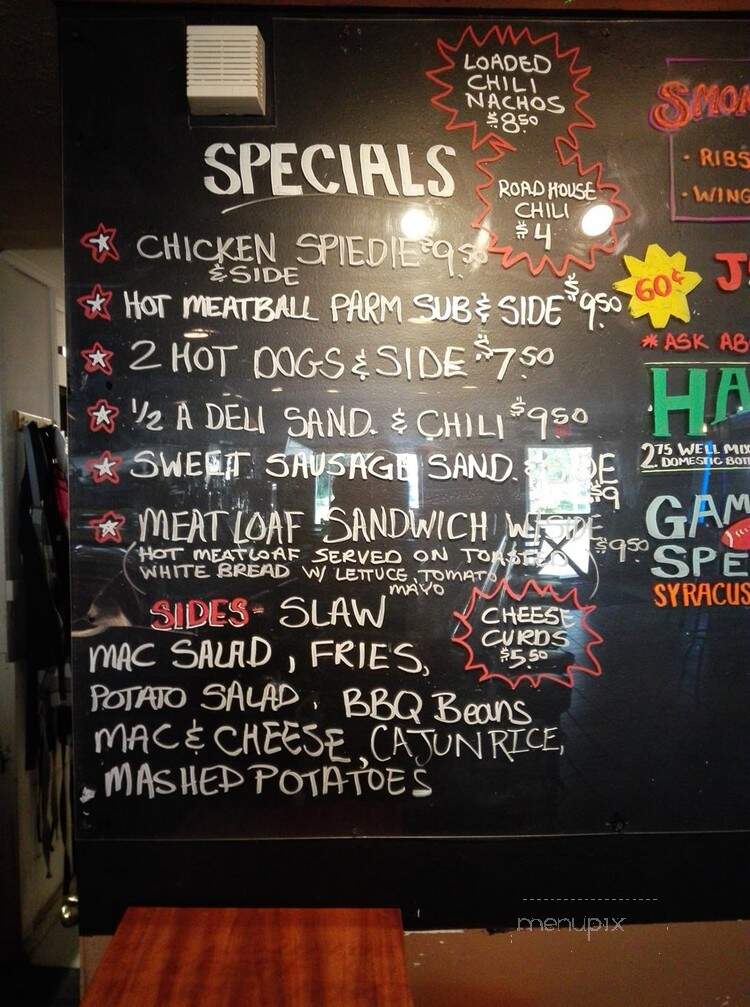 LOADED
CHILI
NACHOS
$8.50
SPECIALS
ROADHOUSE
CHILI
$4
CHICKEN SPIEDIE $9.50
& SIDE
HOT MEATBALL PARM SUB & SIDE $9.50
2 HOT DOGS & SIDE $7.50
1/2 A DELI SAND. & CHILI $9.50
SWEET SAUSAGE SAND.
$9
MEATLOAF SANDWICH W/SIDE
HOT MEATLOAF SERVED ON TOASTED $9.50
WHITE BREAD W/ LETTUCE, TOMATO
MAYO
SIDES- SLAW
CHEESE
CURDS
$5.50
MAC SALAD, FRIES,
POTATO SALAD, BBQ Beans
MAC & CHEESE, CAJUN RICE,
MASHED POTATOES
SMO
· RIBS
· WING
60¢
* ASK AB
HA
2.75 WELL MIX
DOMESTIC BOT
GAM
SPE
SYRACUS
menupix